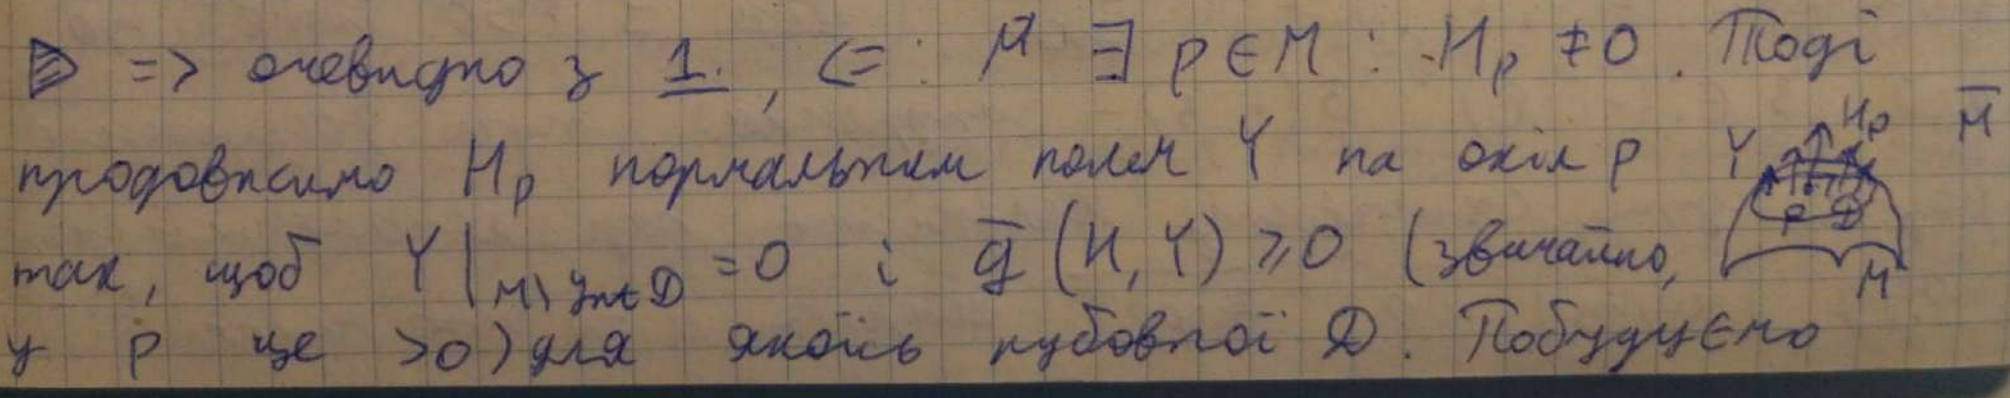 ▷ => очевидно з 1., <=: Й ∃ p ∈ M : H_p ≠ 0. Тоді
продовжимо H_p нормальним полем Y на окіл p
так, щоб Y|_{M\ Int D} = 0 і \overline{g}(H, Y) ≥ 0 (звичайно,
у p це >0) для якоїсь кубовної D. Побудуємо
Y H_p \overline{M}
p D
M